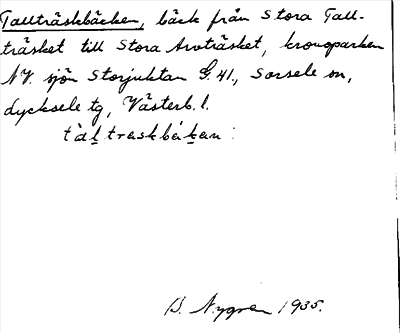 Tallträskbäcken, bäck från Stora Tall-
träsket till Stora Arvträsket, kronoparken
NV. sjön Storjuktan G. 41., Sorsele sn,
Lycksele tg, Västerb. l.
tàḷtraskbäḵan:
B. Nygren 1935.